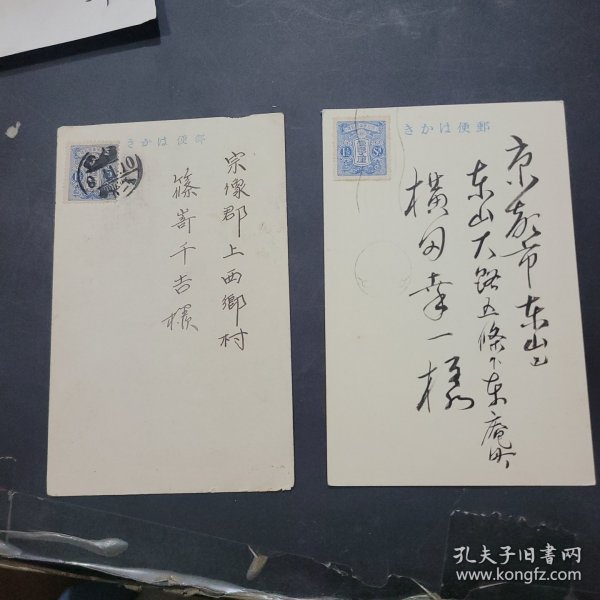 きかはは便郵
宗像郡上西郷村
篠嵜千吉様
きかはは便郵
京都市東山区
東山大路五條下東庵町
横田幸一様
1½ Sn
孔夫子旧书网
www.kongfz.com